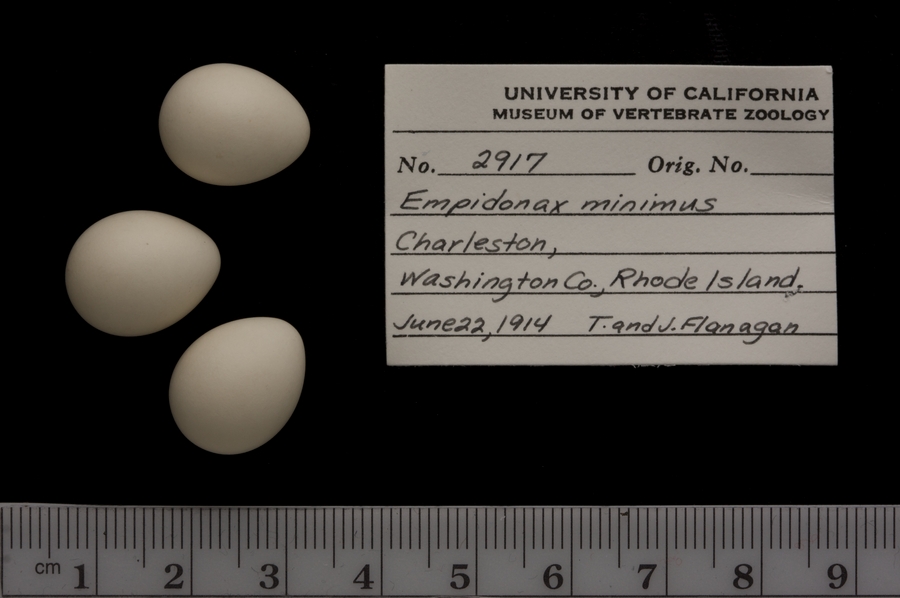 UNIVERSITY OF CALIFORNIA
MUSEUM OF VERTEBRATE ZOOLOGY
No. 2917 Orig. No.
Empidonax minimus
Charleston,
Washington Co., Rhode Island.
June 22, 1914 T. and J. Flanagan
cm 1 2 3 4 5 6 7 8 9